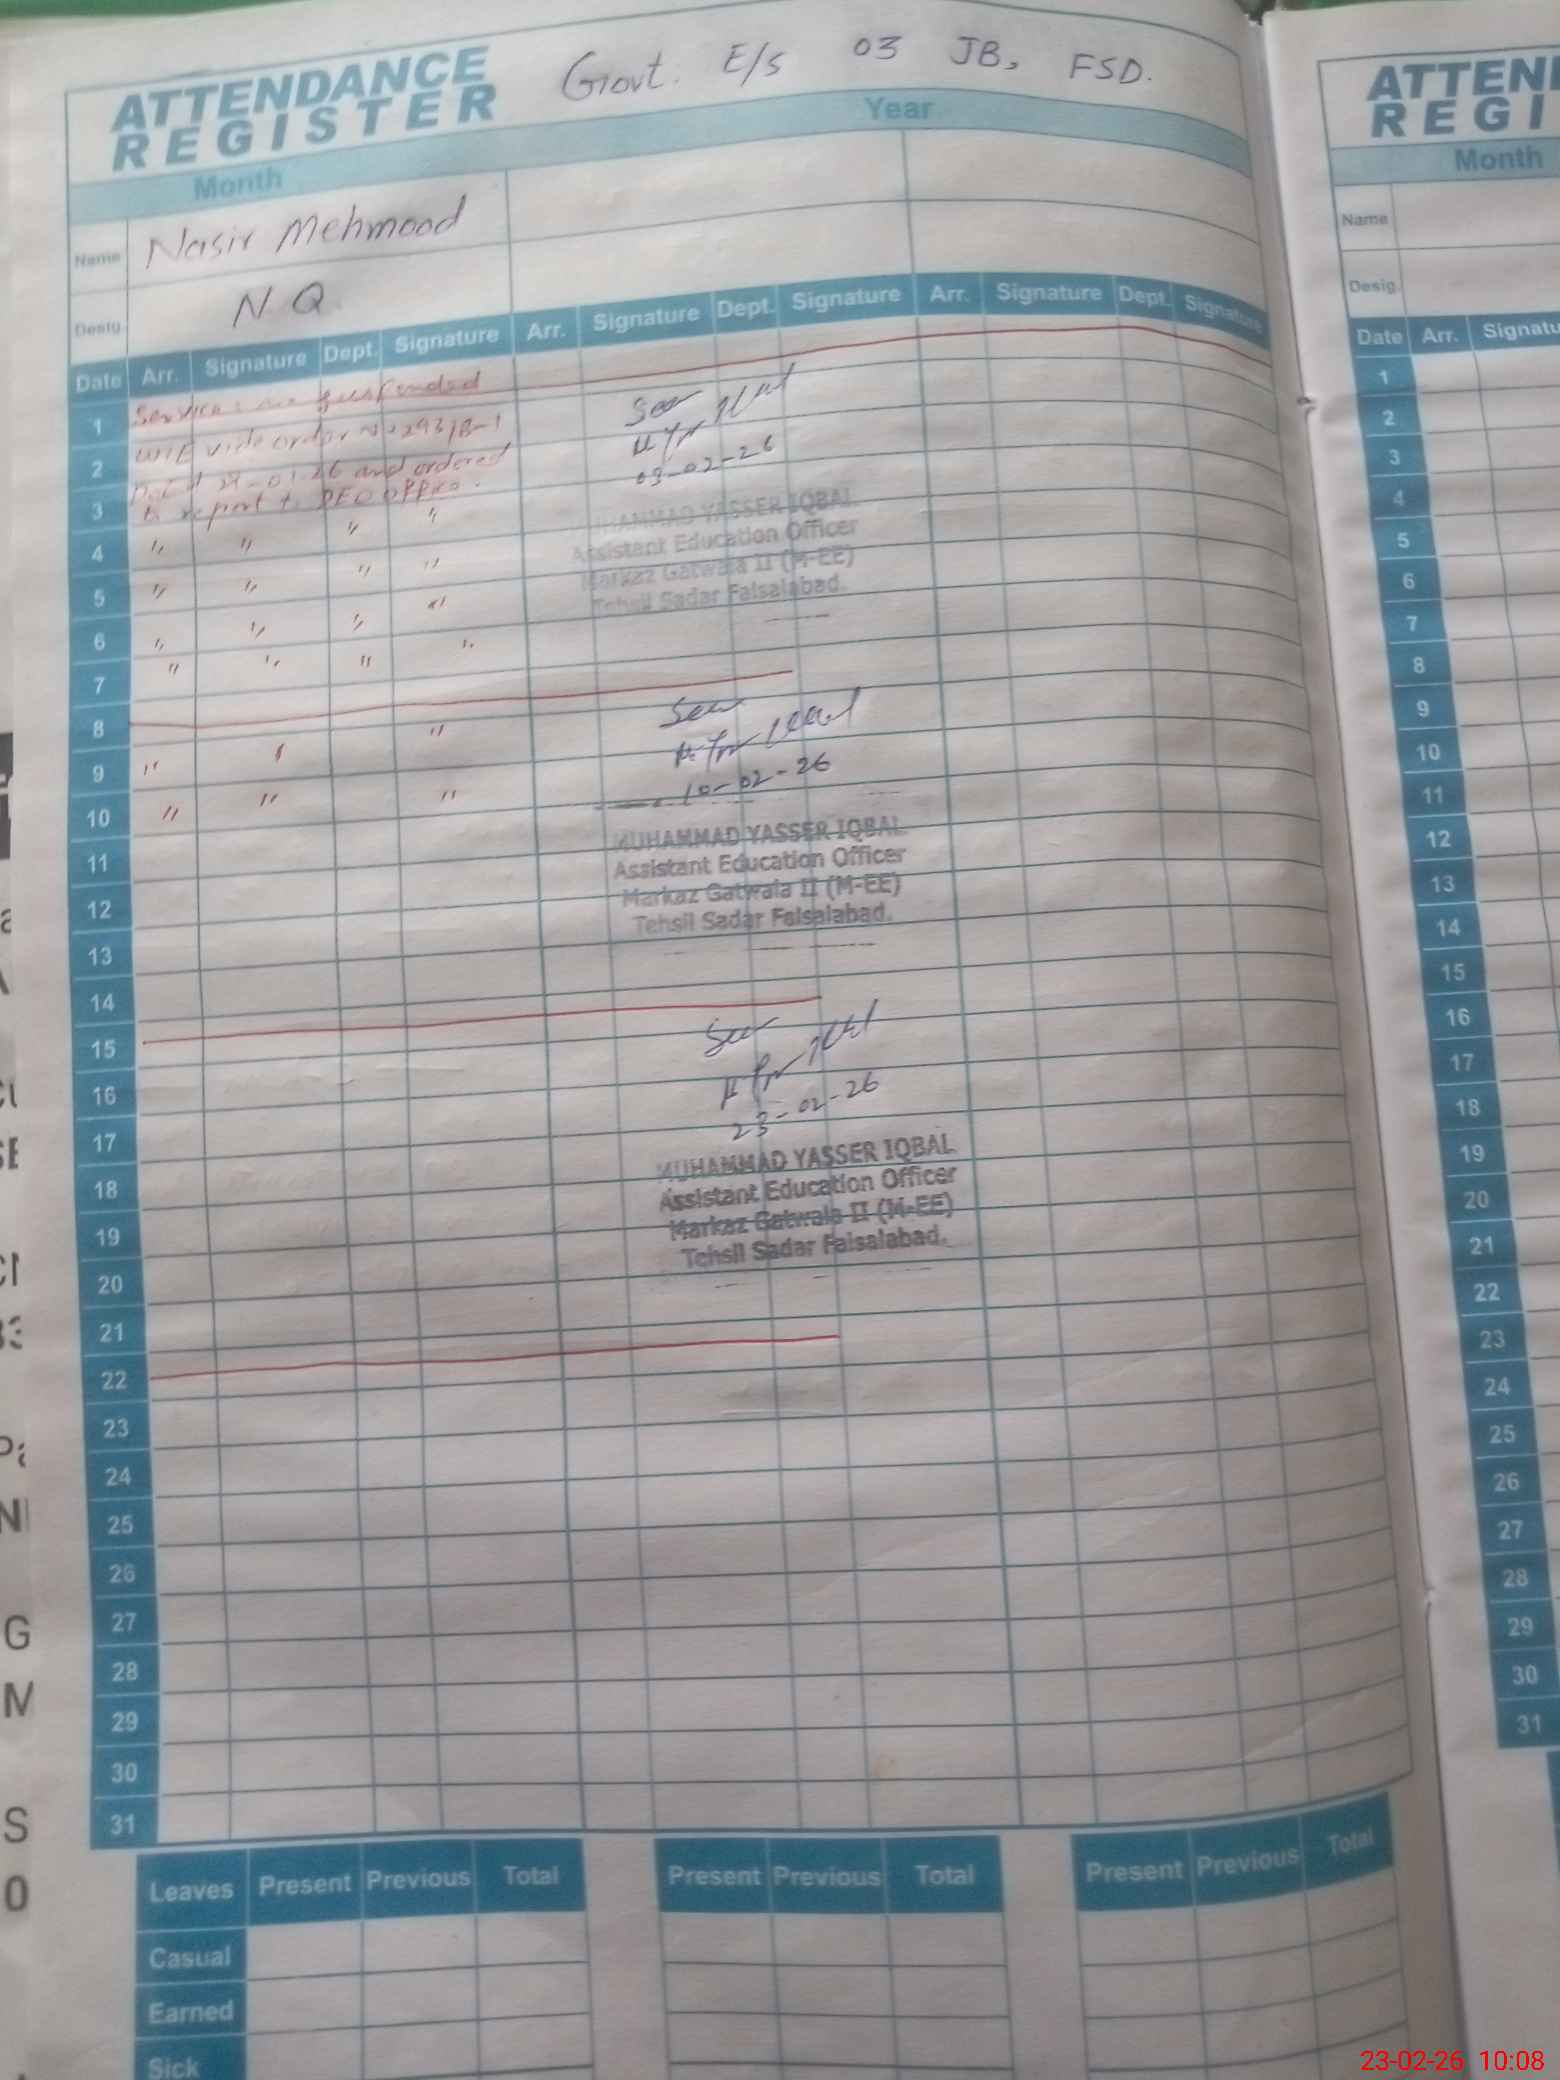 ATTENDANCE
REGISTER
Govt. E/S 03 JB, FSD.
Month
Year
Name Nasir Mehmood
Desig. N.Q.
Date Arr. Signature Dept. Signature Arr. Signature Dept. Signature Arr. Signature Dept. Signature
Services are suspended
vide order No 293/B-1
and ordered
to report to DEO office.
1
2
3
4 " " " "
5 " " " "
6 " " " "
7 " " " "
8
9 " " "
10 " " "
11
12
13
14
15
16
17
18
19
20
21
22
23
24
25
26
27
28
29
30
31
Seen
03-02-26
MUHAMMAD YASSER IQBAL
Assistant Education Officer
Markaz Gatwala II (M-EE)
Tehsil Sadar Faisalabad.
Seen
10-02-26
MUHAMMAD YASSER IQBAL
Assistant Education Officer
Markaz Gatwala II (M-EE)
Tehsil Sadar Faisalabad.
Seen
23-02-26
MUHAMMAD YASSER IQBAL
Assistant Education Officer
Markaz Gatwala II (M-EE)
Tehsil Sadar Faisalabad.
Leaves Present Previous Total Present Previous Total Present Previous Total
Casual
Earned
Sick
ATTEN
REGI
Month
Name
Desig.
Date Arr. Signatu
1
2
3
4
5
6
7
8
9
10
11
12
13
14
15
16
17
18
19
20
21
22
23
24
25
26
27
28
29
30
31
23-02-26 10:08